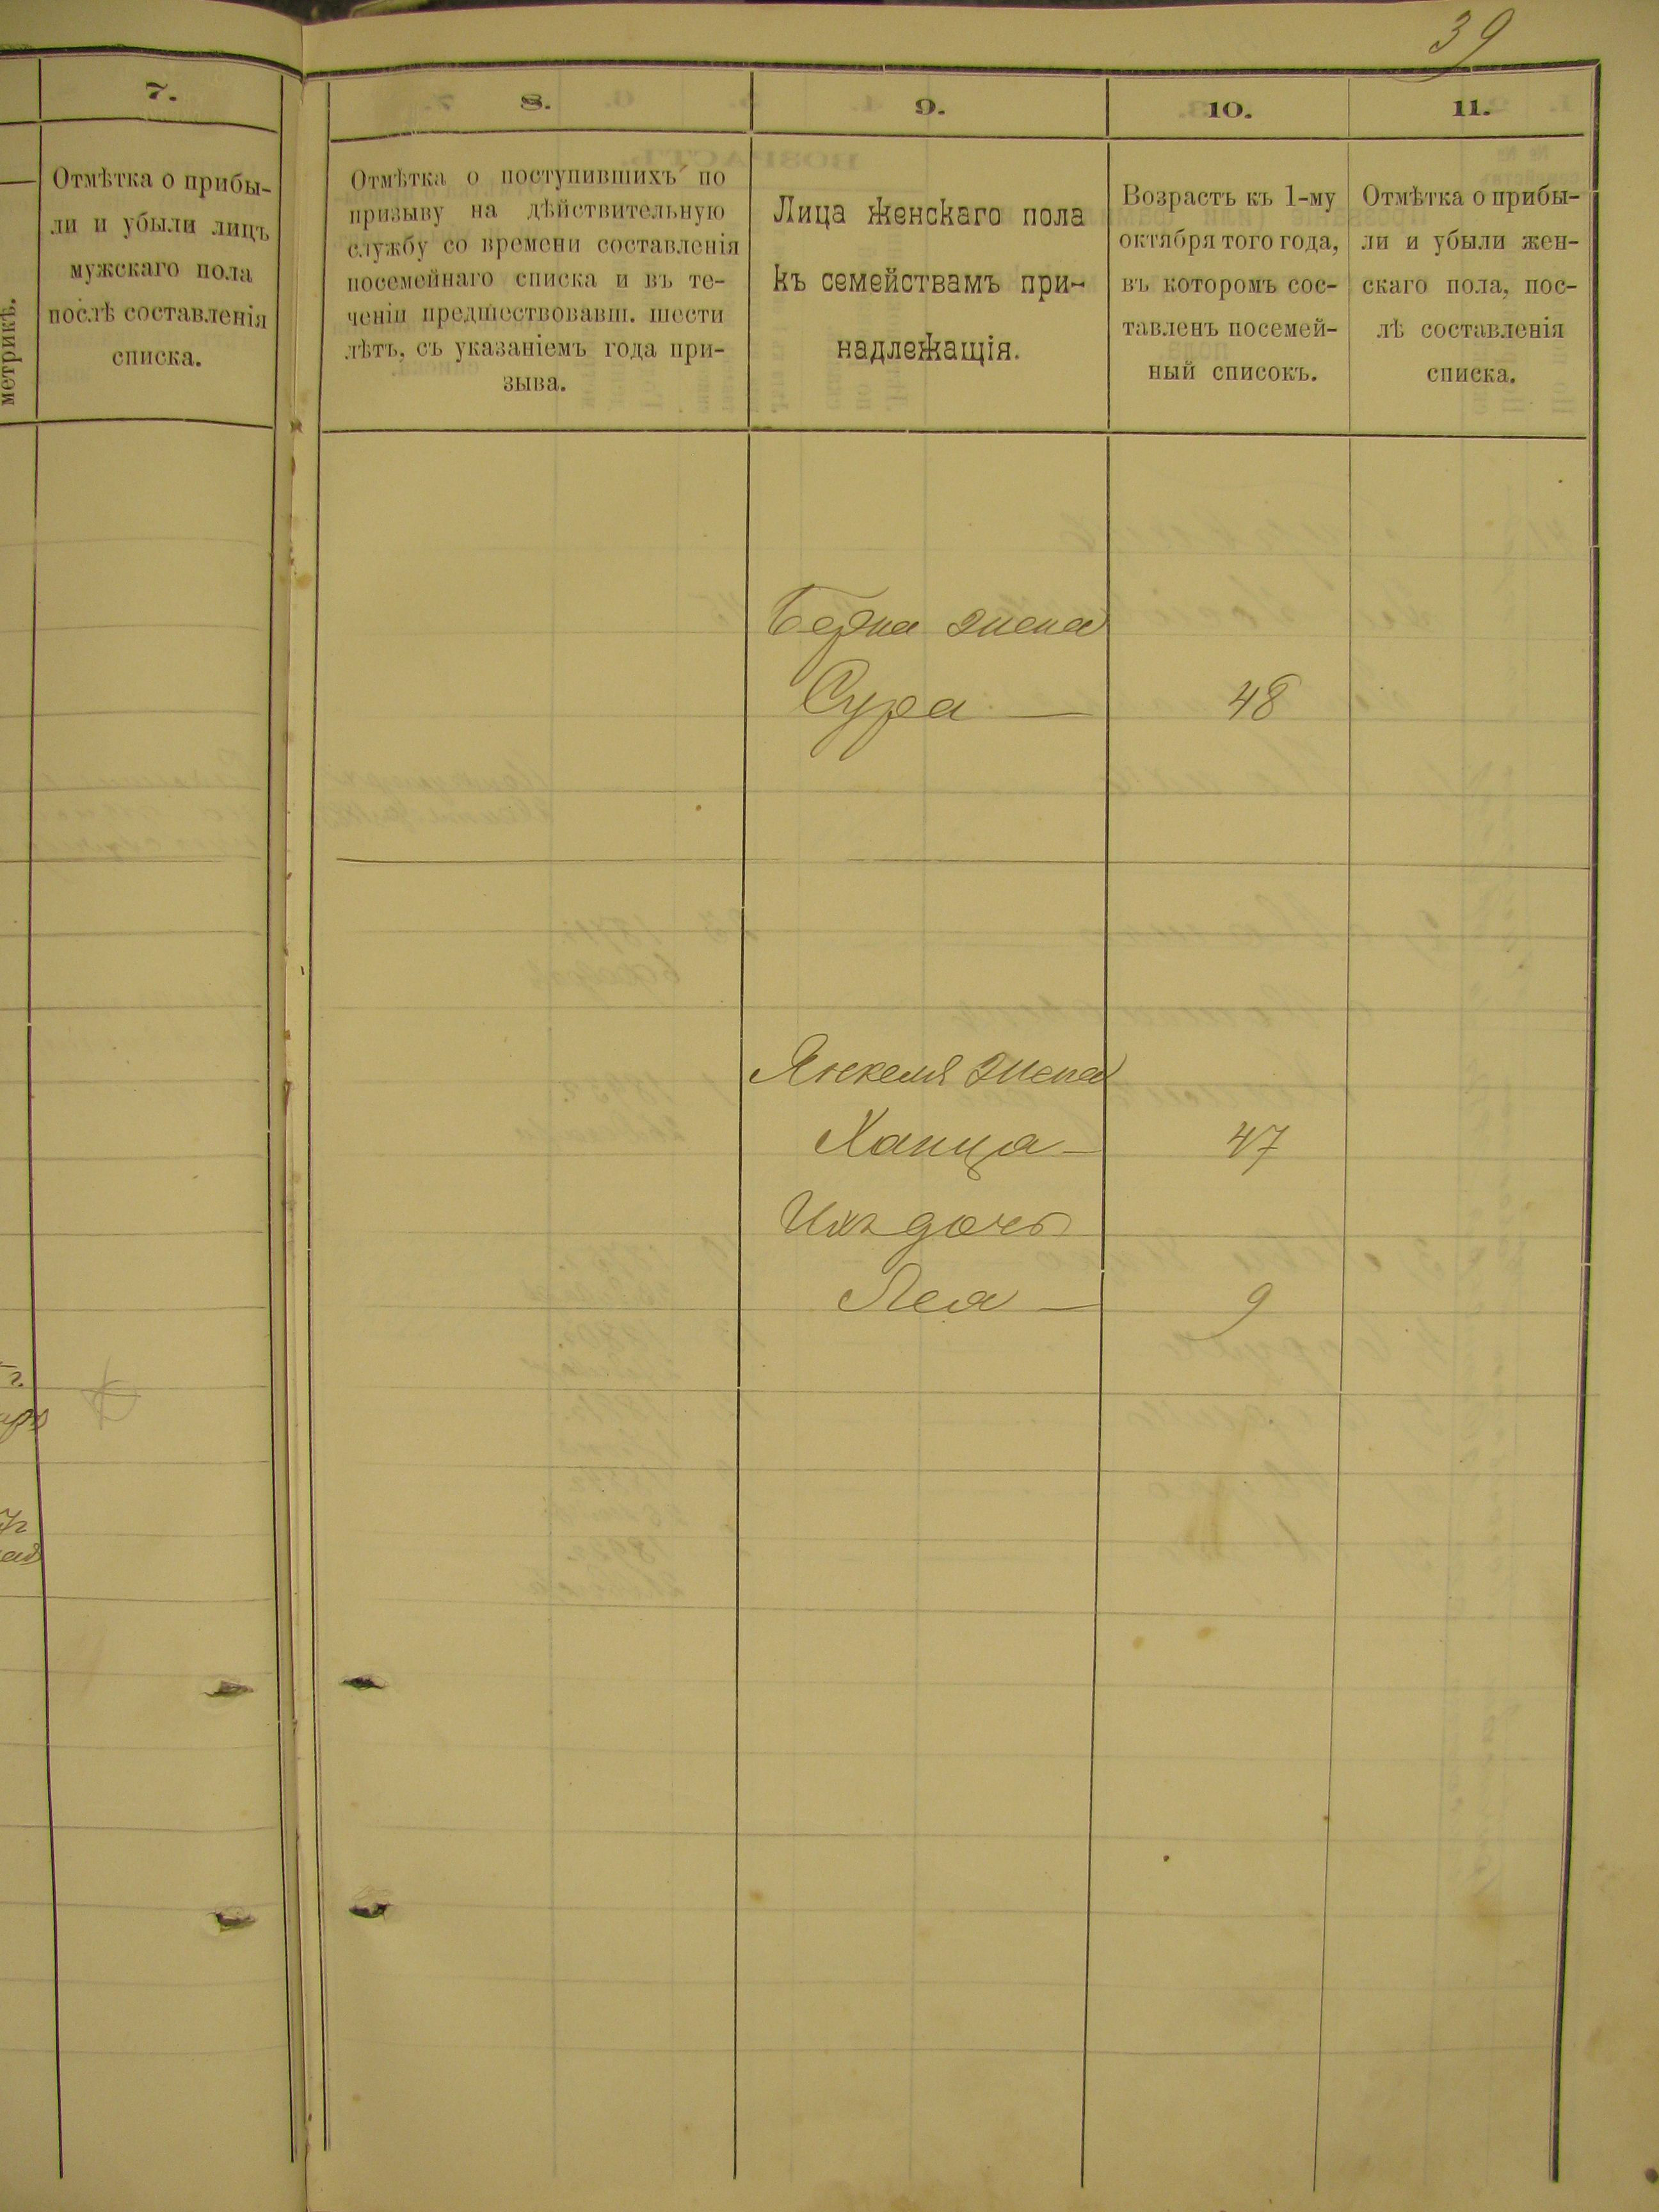 39
7.
Отмѣтка о прибы-
ли и убыли лицъ
мужскаго пола
послѣ составленія
списка.
метрикѣ.
8.
Отмѣтка о поступившихъ по
призыву на дѣйствительную
службу со времени составленія
посемейнаго списка и въ те-
ченіи предшествовавш. шести
лѣтъ, съ указаніемъ года при-
зыва.
9.
Лица женскаго пола
къ семействамъ при-
надлежащія.
10.
Возрастъ къ 1-му
октября того года,
въ которомъ сос-
тавленъ посемей-
ный списокъ.
11.
Отмѣтка о прибы-
ли и убыли жен-
скаго пола, пос-
лѣ составленія
списка.
жена
Сура — 48
Янкеля жена
Ханца — 47
Ихъ дочь
Лея — 9